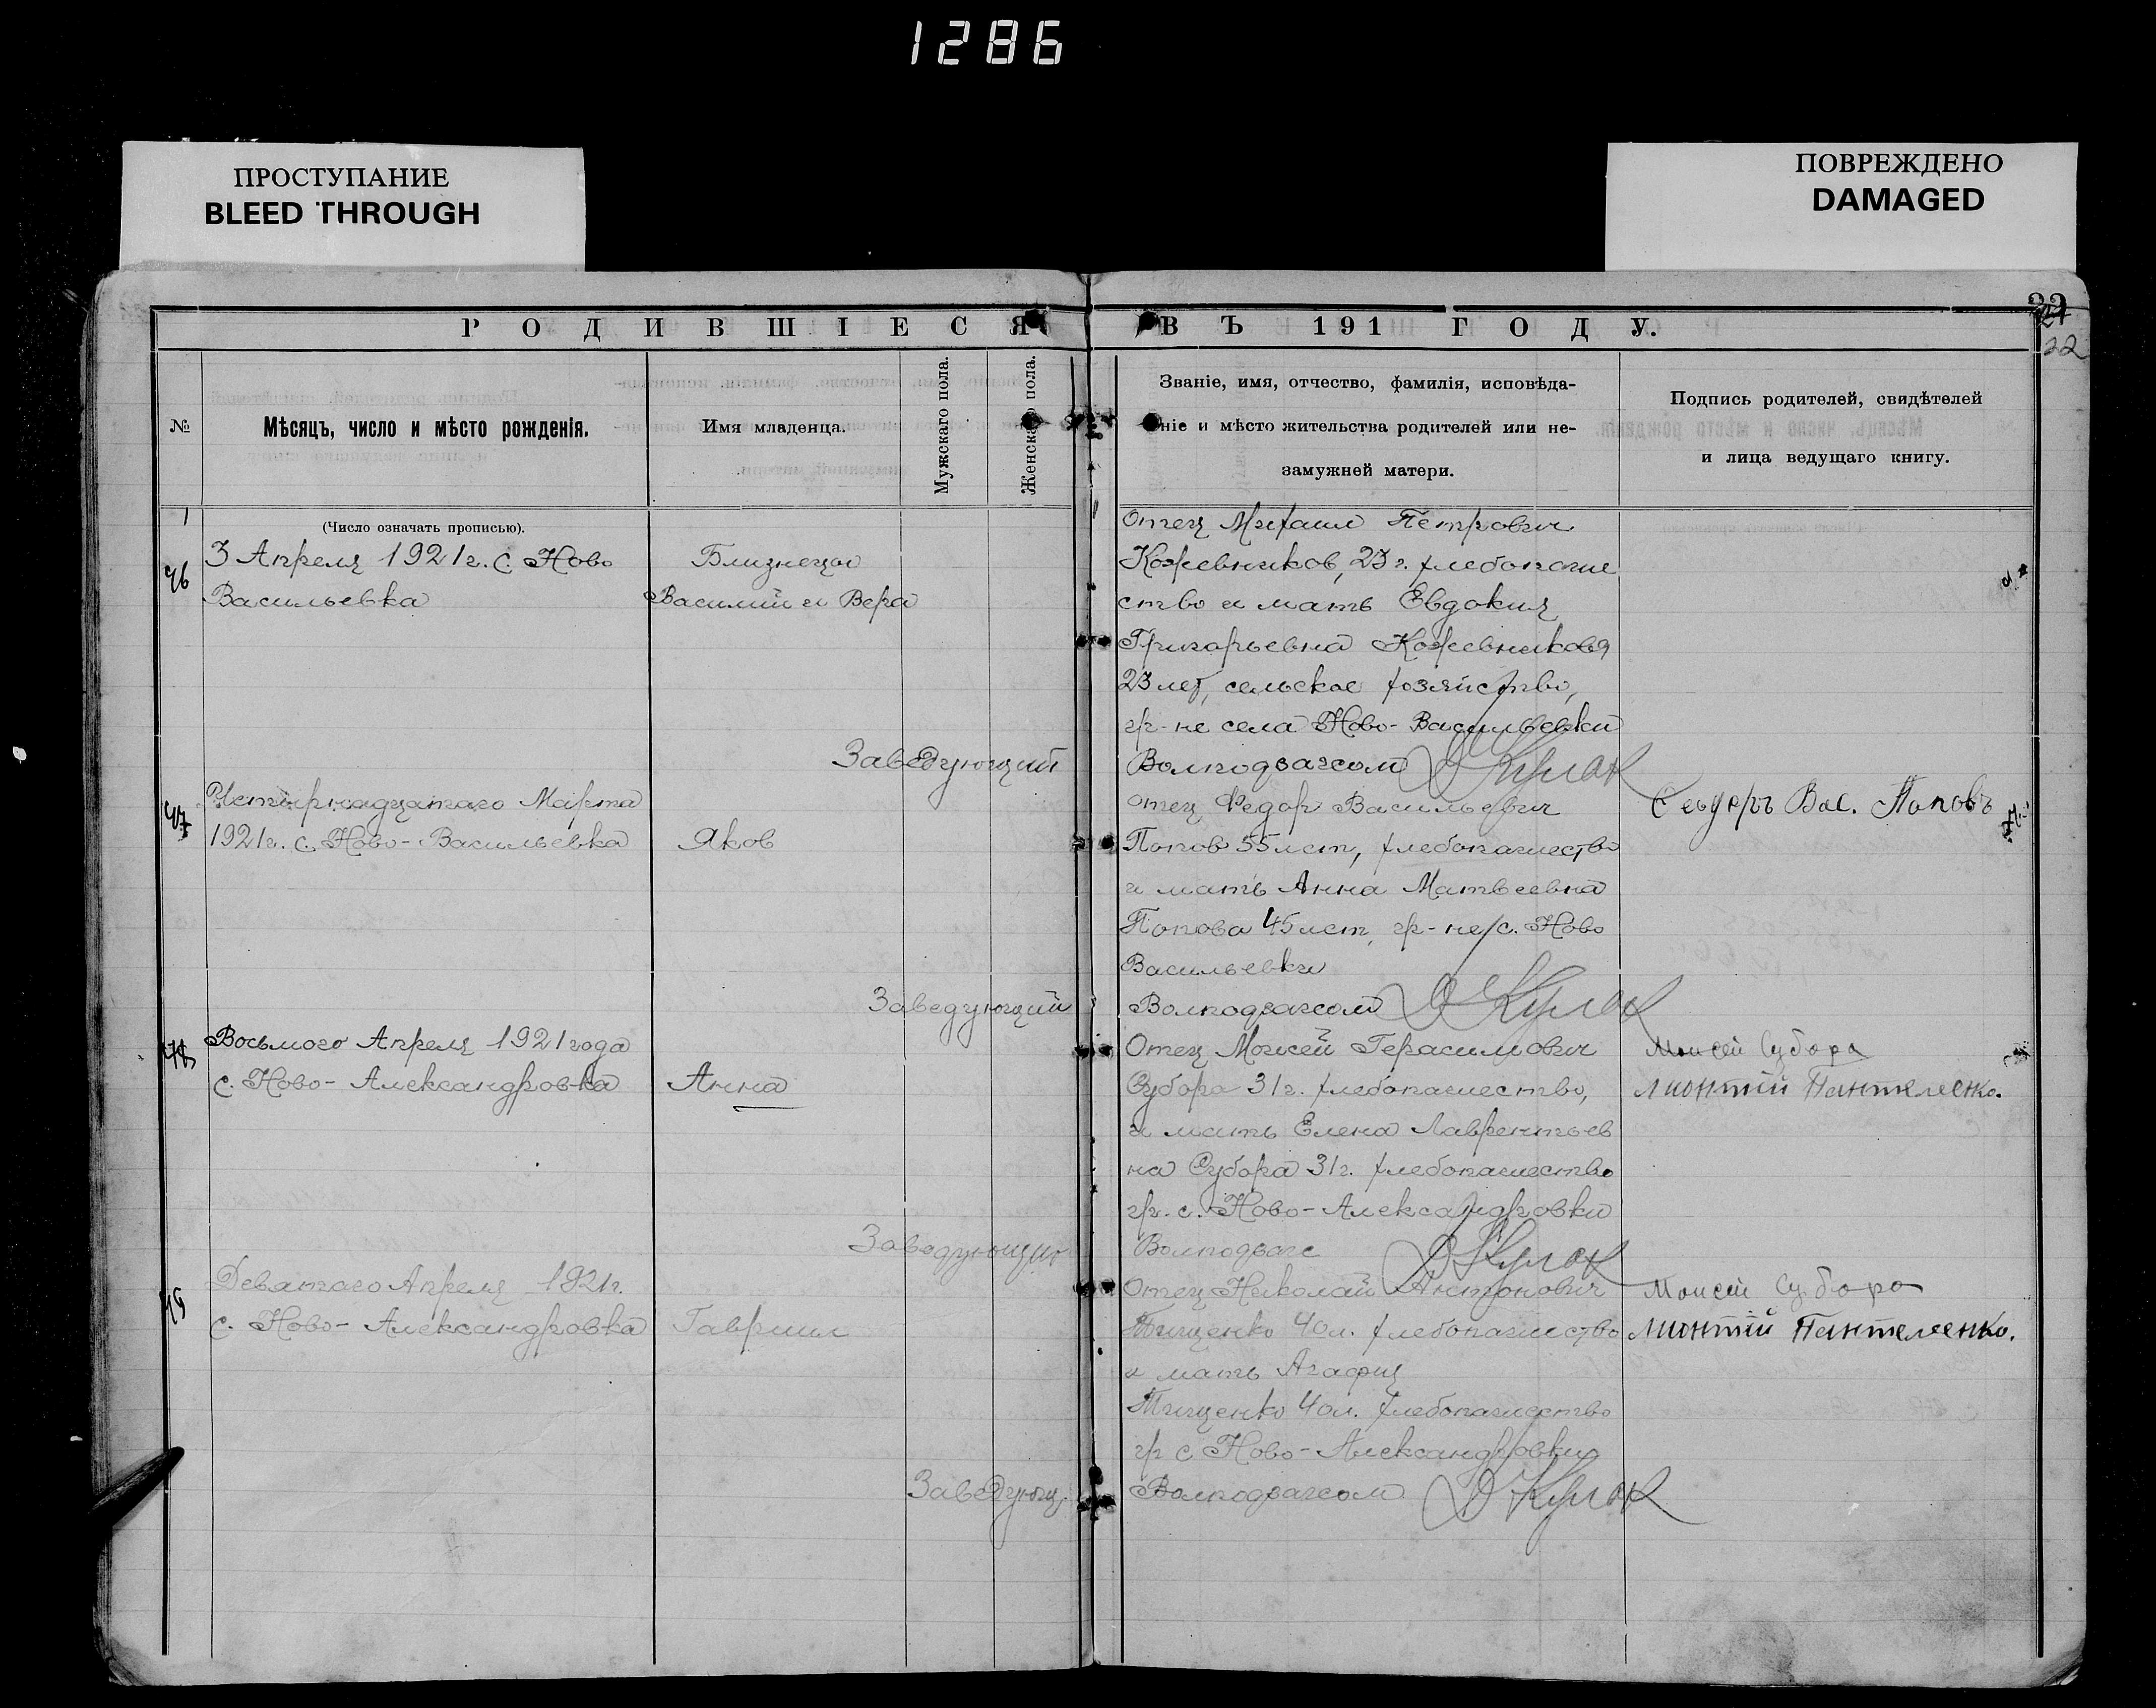 1286
ПРОСТУПАНИЕ
BLEED THROUGH
ПОВРЕЖДЕНО
DAMAGED
22
РОДИВШІЕСЯ ВЪ 191 ГОДУ.
№
Мѣсяцъ, число и мѣсто рожденія.
Имя младенца.
Мужскаго пола.
Женскаго пола.
Званіе, имя, отчество, фамилія, исповѣда-
ніе и мѣсто жительства родителей или не-
замужней матери.
Подпись родителей, свидѣтелей
и лица ведущаго книгу.
(Число означать прописью).
46
3 Апреля 1921г. с. Ново
Васильевка
Близнецы
Василий и Вера
Отец Михаил Петрович
Кожевников, 23 г. хлебопаше
ство и мать Евдокия
Григорьевна Кожевникова
23 лет, сельское хозяйство,
гр-не села Ново-Васильевки
Заведующий Волподзагсом ДКулак
47
Четырнадцатаго Марта
1921г. с. Ново-Васильевка
Яков
Отец Федор Васильевич
Попов 55 лет, хлебопашество
и мать Анна Матвеевна
Попова 45 лет, гр-не с. Ново
Васильевки
Вас. Поповъ
Заведующий Волподзагсом ДКулак
48
Восьмого Апреля 1921 года
с. Ново-Александровка
Анна
Отец Моисей Герасимович
Субора 31г. хлебопашество,
и мать Елена Лаврентьев
на Субора 31г. хлебопашество
гр. с. Ново-Александровки
Моисей Субора
Лионтій Пантелеенко.
Заведующий Волподзагс ДКулак
49
Девятаго Апреля 1921г.
с. Ново-Александровка
Гавриил
Отец Николай Антонович
Тищенко 40л. хлебопашество
и мать Агафия
Тищенко 40л. хлебопашество
гр с Ново-Александровки
Моисей Субора
Лионтій Пантелеенко.
Заведующ. Волподзагсом ДКулак